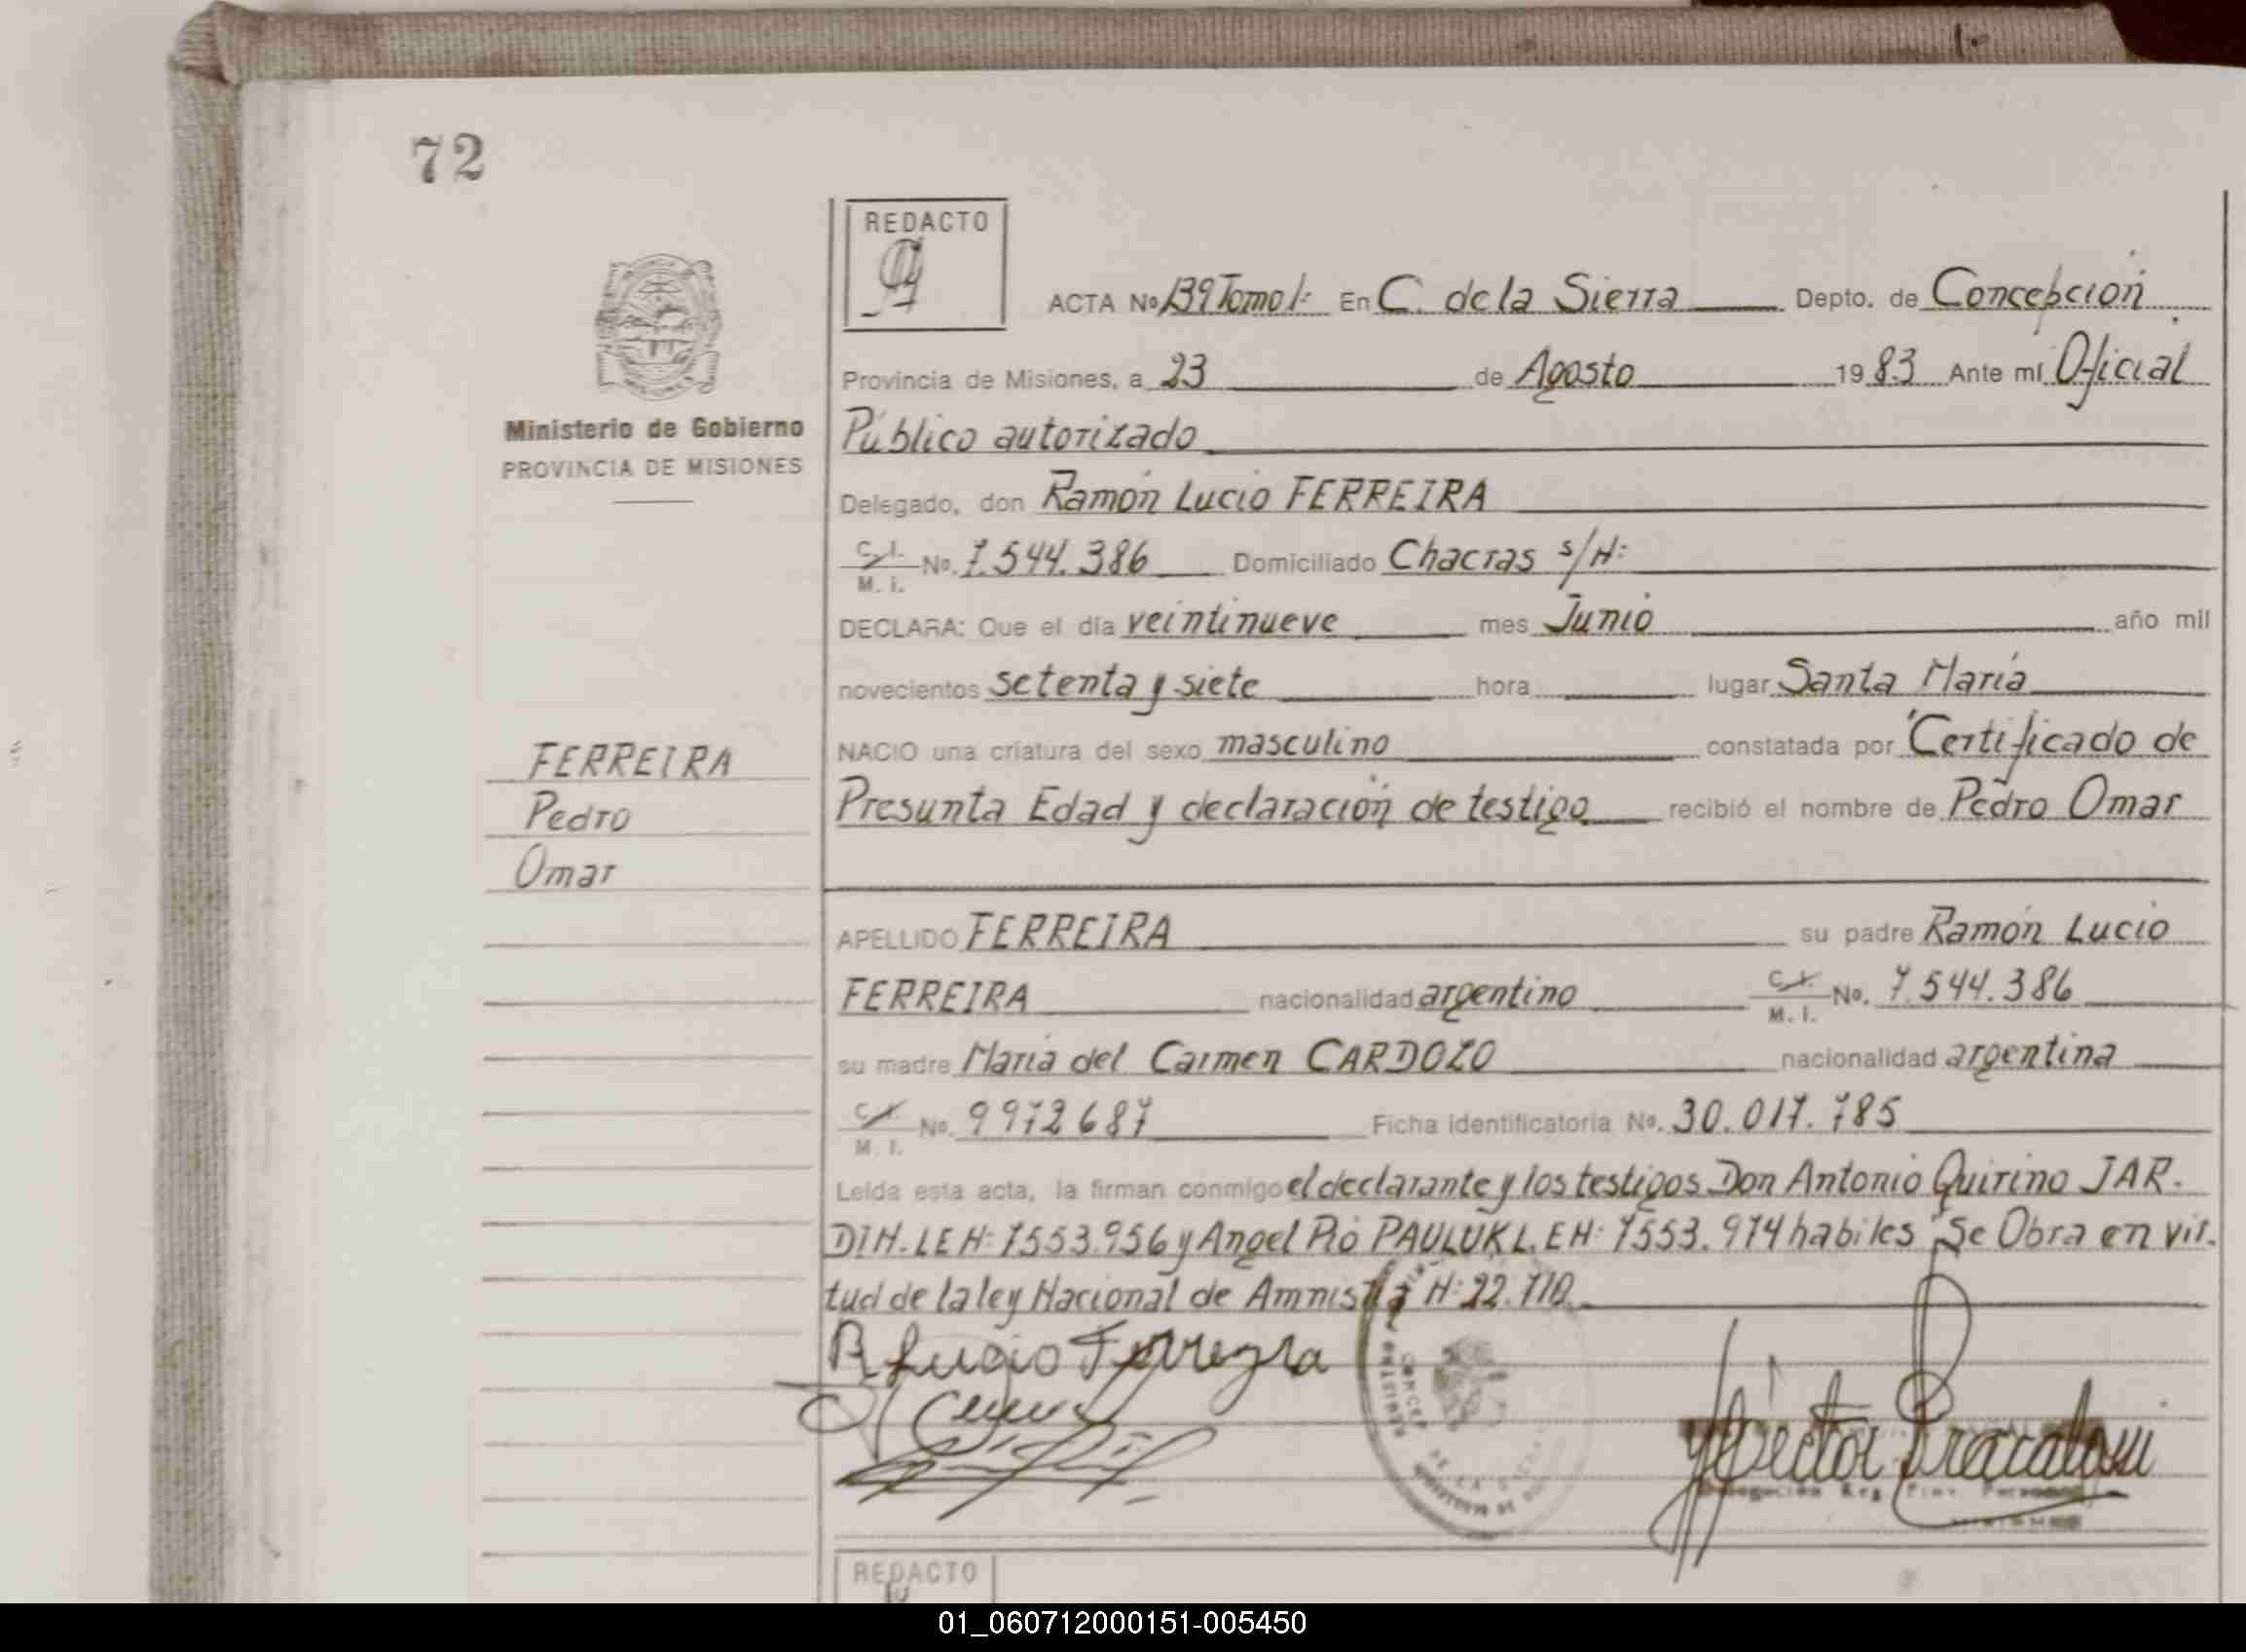 72
REDACTO
ACTA Nº 139 Tomo I: En C. de la Sierra Depto. de Concepción
Provincia de Misiones, a 23 de Agosto 1983 Ante mí Oficial
Ministerio de Gobierno
PROVINCIA DE MISIONES
Público autorizado
Delegado, don Ramón Lucio FERREIRA
C. I. M. I. No. 7.544.386 Domiciliado Chacras s/N:
DECLARA: Que el día veintinueve mes Junio año mil
novecientos setenta y siete hora lugar Santa María
NACIO una criatura del sexo masculino constatada por Certificado de
Presunta Edad y declaración de testigo recibió el nombre de Pedro Omar
FERREIRA
Pedro
Omar
APELLIDO FERREIRA su padre Ramón Lucio
FERREIRA nacionalidad argentino C. I. M. I. No. 7.544.386
su madre María del Carmen CARDOZO nacionalidad argentina
C. I. M. I. No. 9972687 Ficha identificatoria No. 30.017.785
Leída esta acta, la firman conmigo el declarante y los testigos Don Antonio Quirino JAR.
DIN.LE N: 7553.956 y Angel Pío PAULUK L.E N: 7553.974 habiles "Se Obra en vir.
tud de la ley Nacional de Amnistía N: 22.710
R Lucio Ferreyra
CONCEP DE LA
Delegación Reg. Prov.
REDACTO
01_060712000151-005450